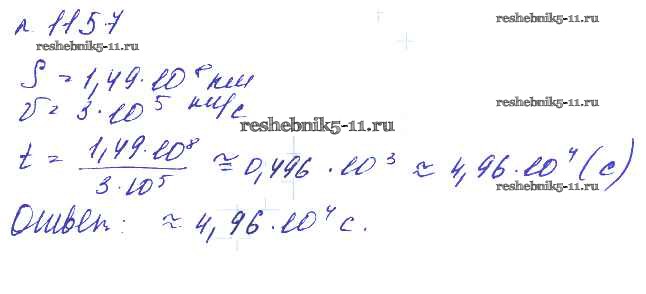 п. 1157
reshebnik5-11.ru
S = 1,49·10⁸ км
v = 3·10⁵ км/с
reshebnik5-11.ru
reshebnik5-11.ru
t = 1,49·10⁸ / 3·10⁵ ≅ 0,496·10³ ≈ 4,96·10⁴ (с)
reshebnik5-11.ru
Ответ: ≈ 4,96·10⁴ с.